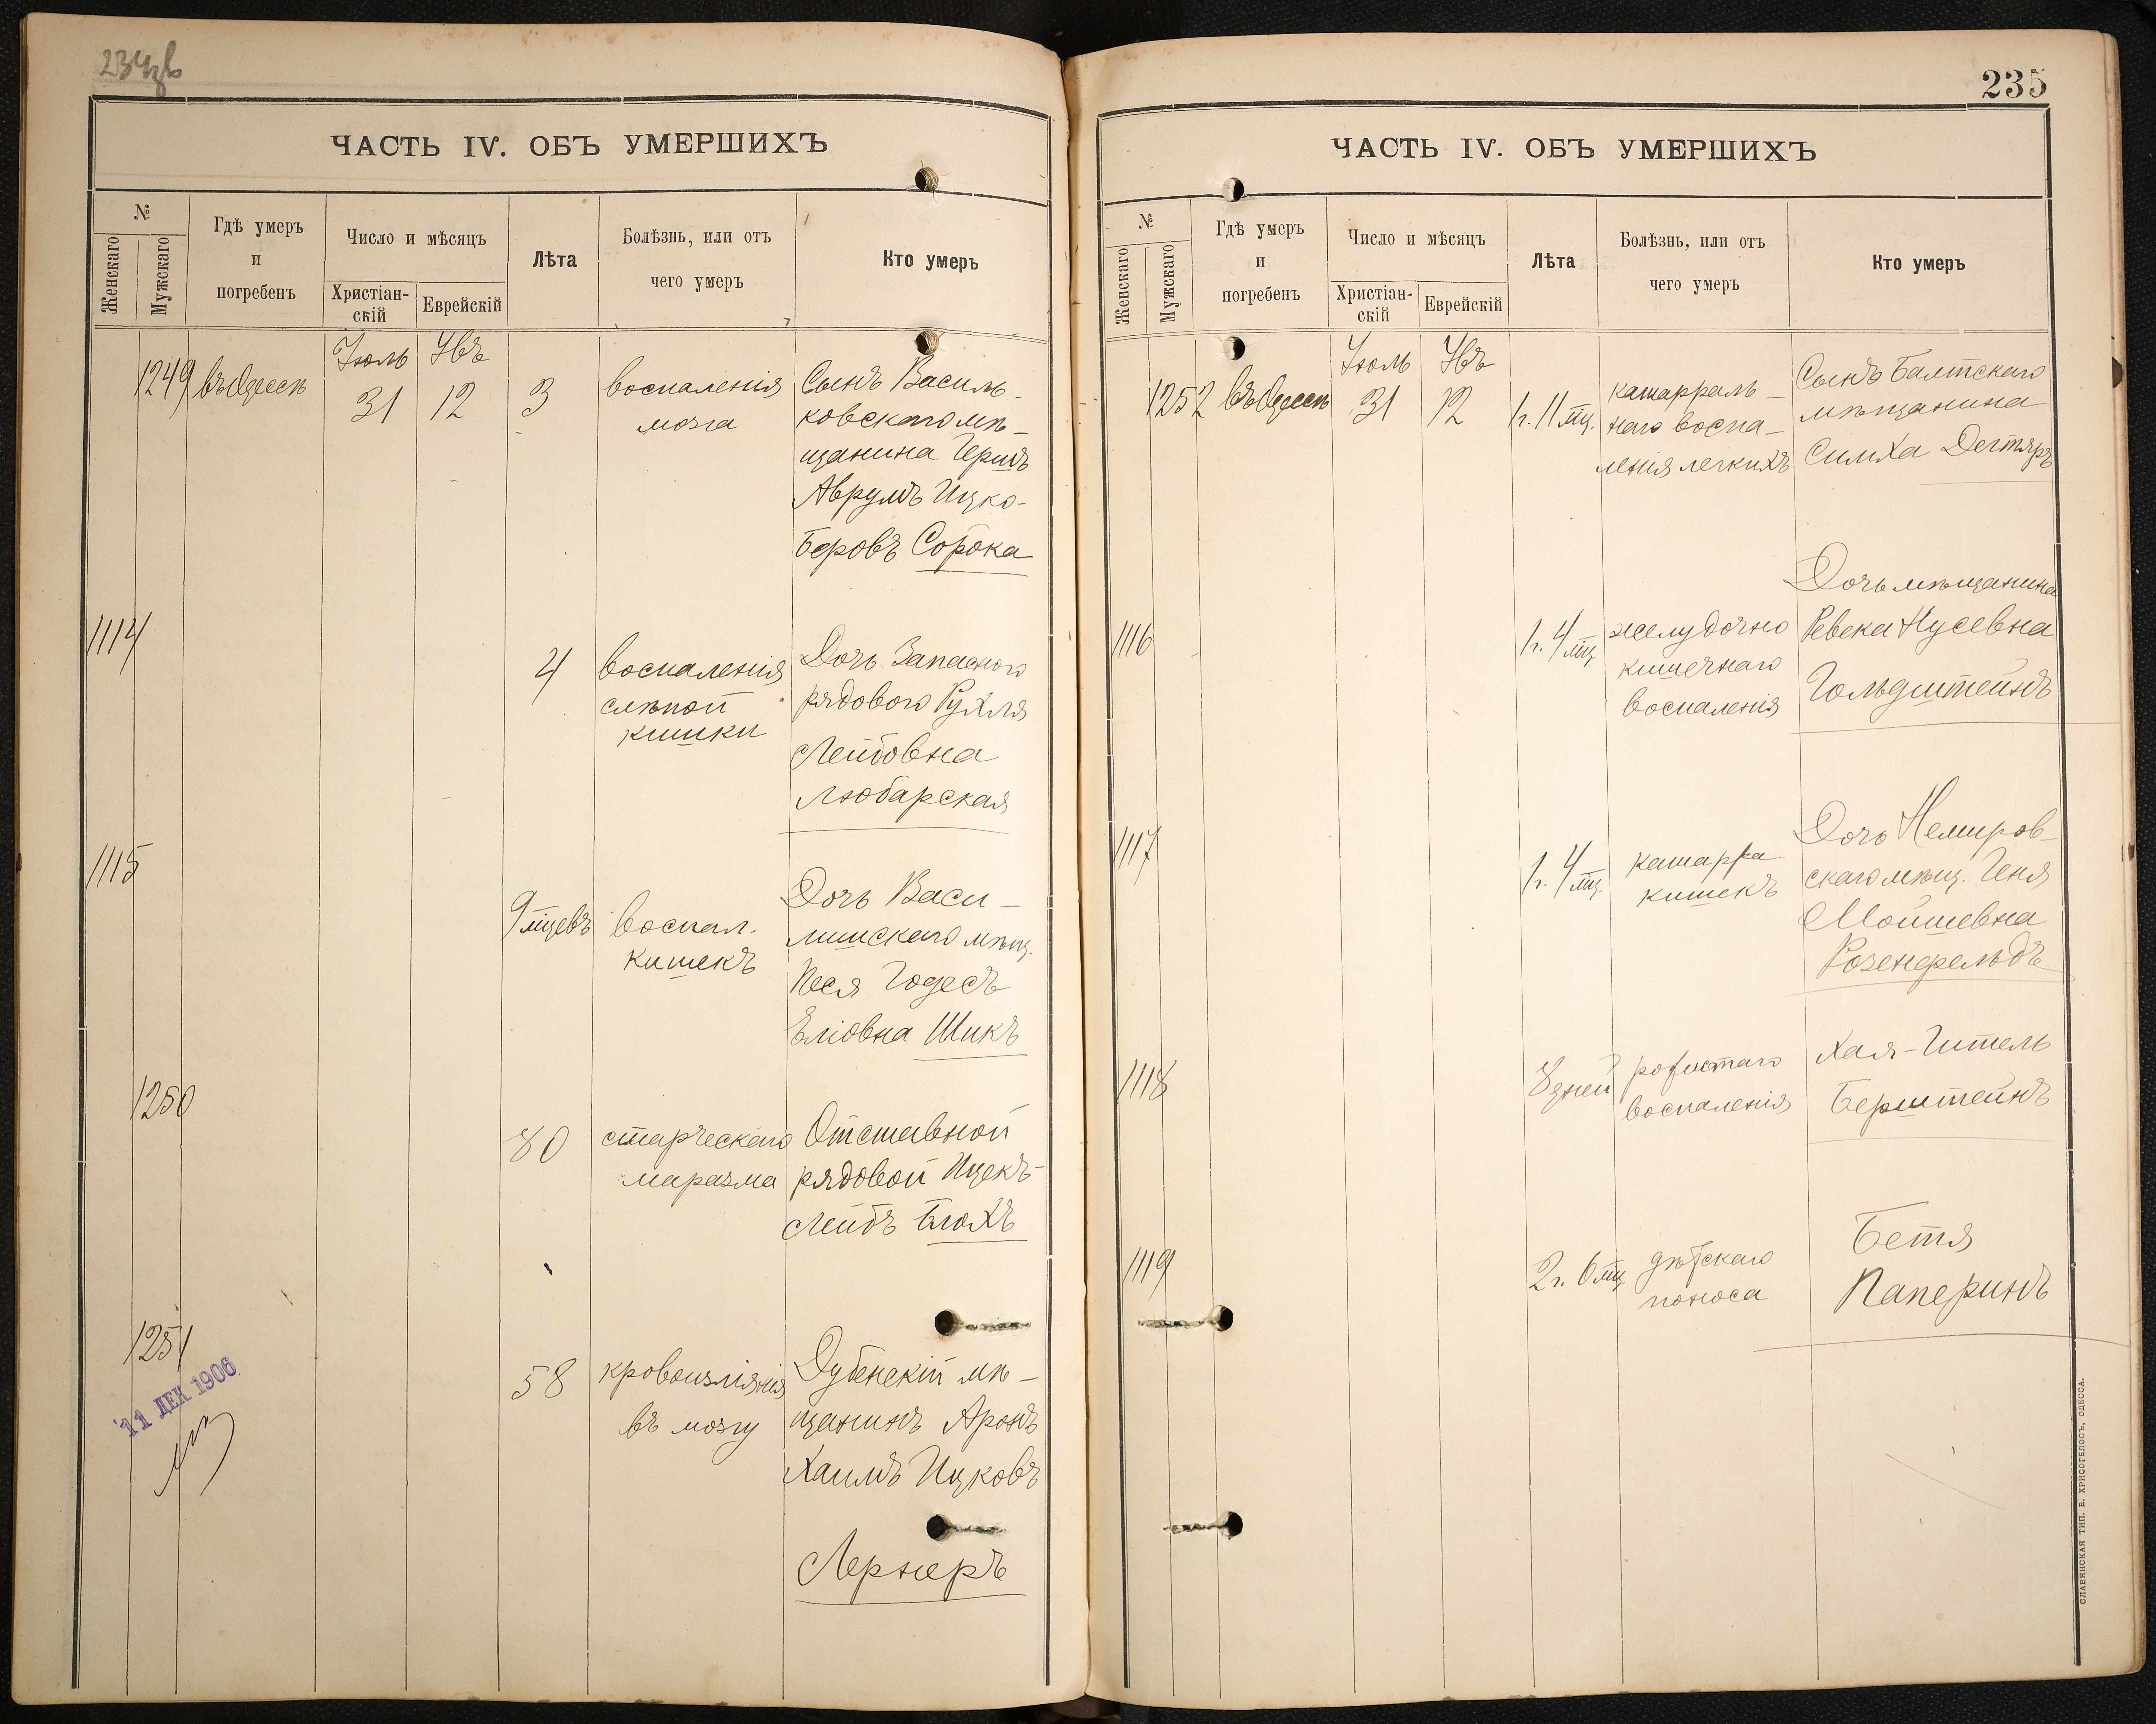 234об
ЧАСТЬ IV. ОБЪ УМЕРШИХЪ
№
Женскаго
Мужскаго
Гдѣ умеръ
и
погребенъ
Число и мѣсяцъ
Христіан-
скій
Еврейскій
Лѣта
Болѣзнь, или отъ
чего умеръ
Кто умеръ
Іюль
1249 въ Одессѣ 31 12 3 воспаленія Сынъ Василь-
мозга ковскаго мѣ-
щанина Гершъ
Аврумъ Ицко-
Беровъ Сорока
1114
4 воспаленія Дочь Запасного
слѣпой рядового Рухля
кишки Лейбовна
Любарская
1115
9 мцевъ воспал. Дочь Васи-
кишекъ лишскаго мѣщ.
Песя Годесъ
Еліовна Шикъ
1250
80 старческаго Отставной
маразма рядовой Ицекъ-
Лейбъ Блохъ
1251
58 кровоизліянія Дубенскій мѣ-
въ мозгу щанинъ Аронъ
Хаимъ Ицковъ
Лернеръ
11 ДЕК 1906
235
ЧАСТЬ IV. ОБЪ УМЕРШИХЪ
№
Женскаго
Мужскаго
Гдѣ умеръ
и
погребенъ
Число и мѣсяцъ
Христіан-
скій
Еврейскій
Лѣта
Болѣзнь, или отъ
чего умеръ
Кто умеръ
Іюль
1252 въ Одессѣ 31 12 1 г. 11 мц. катарраль- Сынъ Балтскаго
наго воспа- мѣщанина
ленія легкихъ Симха Дегтяръ
Дочь мѣщанина
1116 1 г. 4 мц желудочно Ревека Нусевна
кишечнаго Гольдштейнъ
воспаленія
1117 Дочь Немиров-
1 г. 4 мц. катарра скаго мѣщ. Геня
кишекъ Мошевна
Розенфельдъ
1118 8 дней рожистаго Хая-Гитель
воспаленія Берштейнъ
1119 2 г. 6 мц дѣтскаго Бетя
поноса Паперинъ
СЛАВЯНСКАЯ ТИП. Е. ХРИСОГЕЛОСЪ, ОДЕССА.